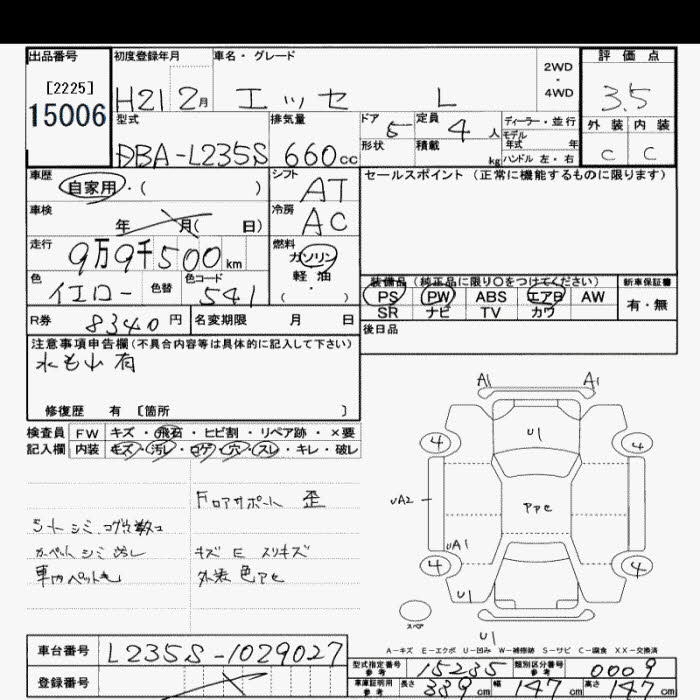 出品番号
[2225]
15006
初度登録年月
H21 2月
車名・グレード
エッセ L
2WD
・
4WD
評価点
3.5
外装 内装
C C
型式
DBA-L235S
排気量
660cc
ドア 5
形状
定員 4人
積載 kg
ディーラー・並行
モデル
年式 年
ハンドル 左・右
車歴
自家用・( )
シフト
AT
セールスポイント (正常に機能するものに限ります)
車検
年 月( 日)
冷房
AC
走行
9万9千500km
燃料
ガソリン
軽・油
( ・ )
色
イエロー
色替
色コード
541
装備品 (純正品に限り○をつけてください)
PS PW ABS エアB AW
SR ナビ TV カワ
新車保証書
有・無
R券 8340円
名変期限 月 日
後日品
注意事項申告欄(不具合内容等は具体的に記入して下さい)
水もれ 有
修復歴 有 [箇所 ]
検査員 FW キズ・飛石・ヒビ割・リペア跡・×要
記入欄 内装 キズ・汚レ・コゲ・穴・スレ・キレ・破レ
Fロアサポート 歪
シート シミ コゲ穴数コ
カーペット シミ 汚レ
車内ペット毛
キズ E スリキズ
外装 色アセ
A1 A1
U1
4 4
UA2
アアセ
UA1
4 4
U1
スペア
U1
A-キズ E-エクボ U-凹み W-補修跡 S-サビ C-腐食 XX-交換済
車台番号 L235S-1029027
登録番号
型式指定番号
参考
15235
類別区分番号
参考
0009
車庫証明用
参考
長さ 339cm 幅 147cm 高さ 147cm